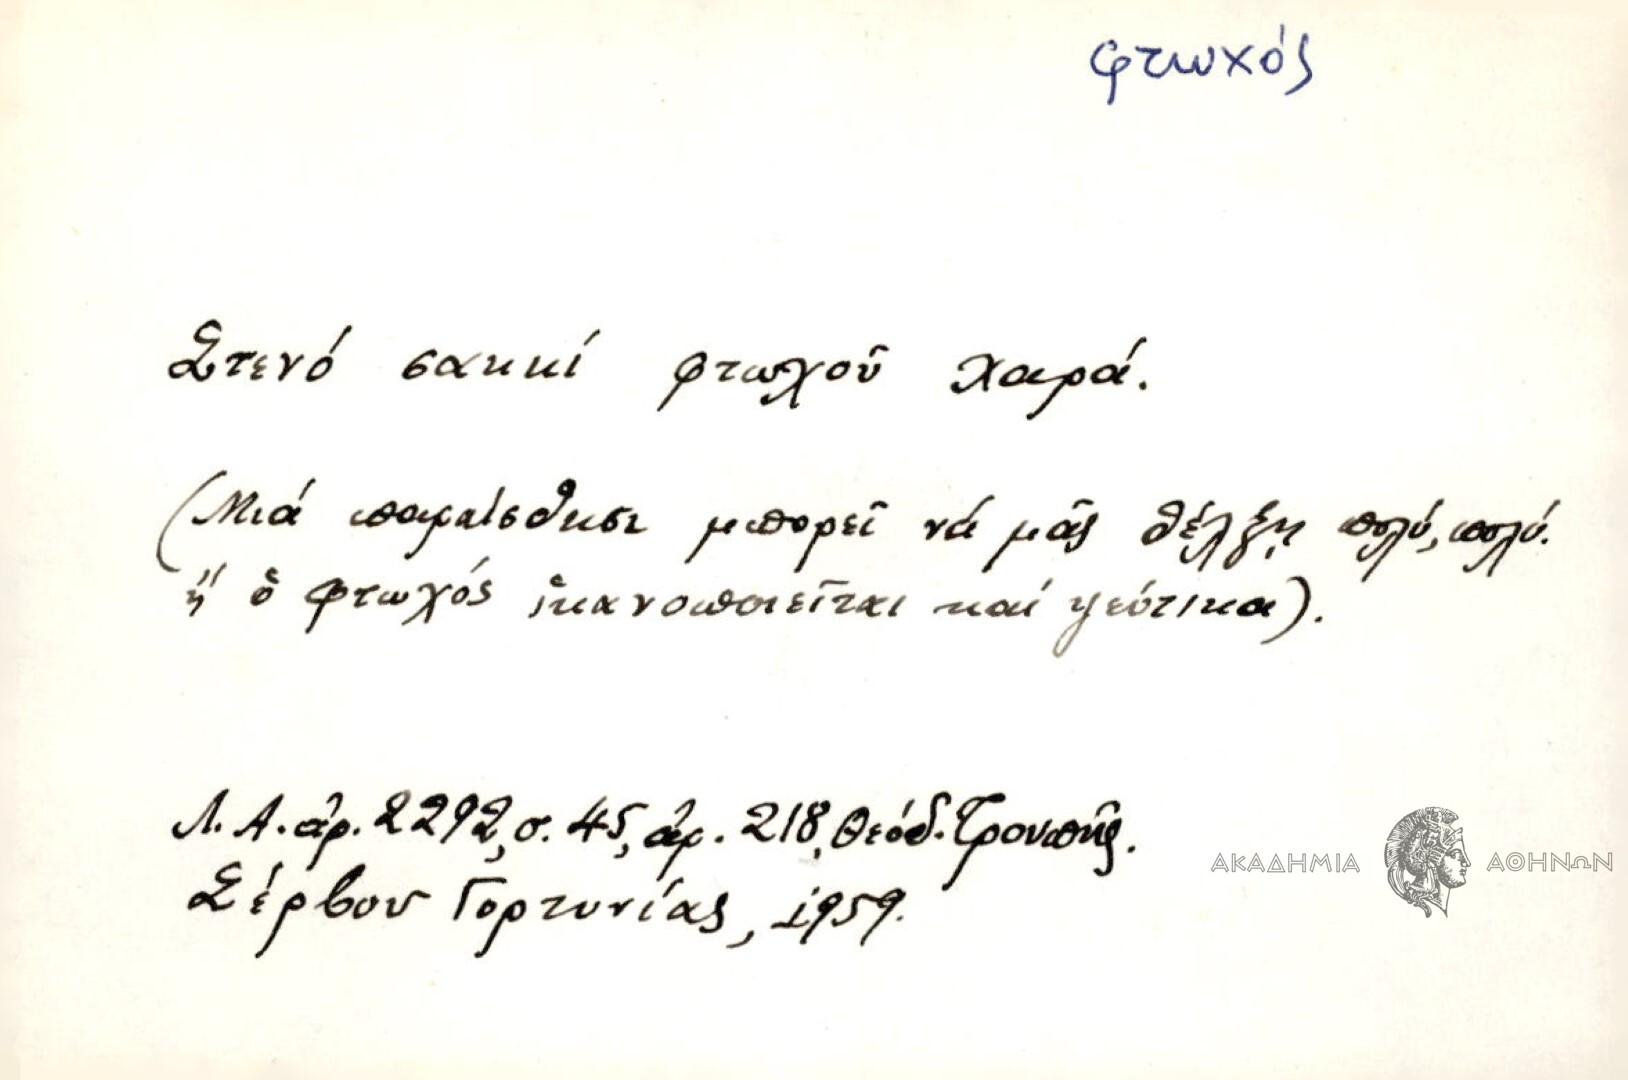 φτωχός
Στενό σακκί φτωχοῦ χαρά.
(Μιά παραίσθησι μπορεῖ νά μᾶς θέλξῃ πολύ, πολύ.
ἤ ὁ φτωχός ἱκανοποιεῖται καί ψεύτικα).
Λ.Α. ἀρ. 2292, σ. 45, ἀρ. 218, Θεόδ. Τρουπῆς.
Σέρβου Γορτυνίας, 1959.
ΑΚΑΔΗΜΙΑ ΑΘΗΝΩΝ